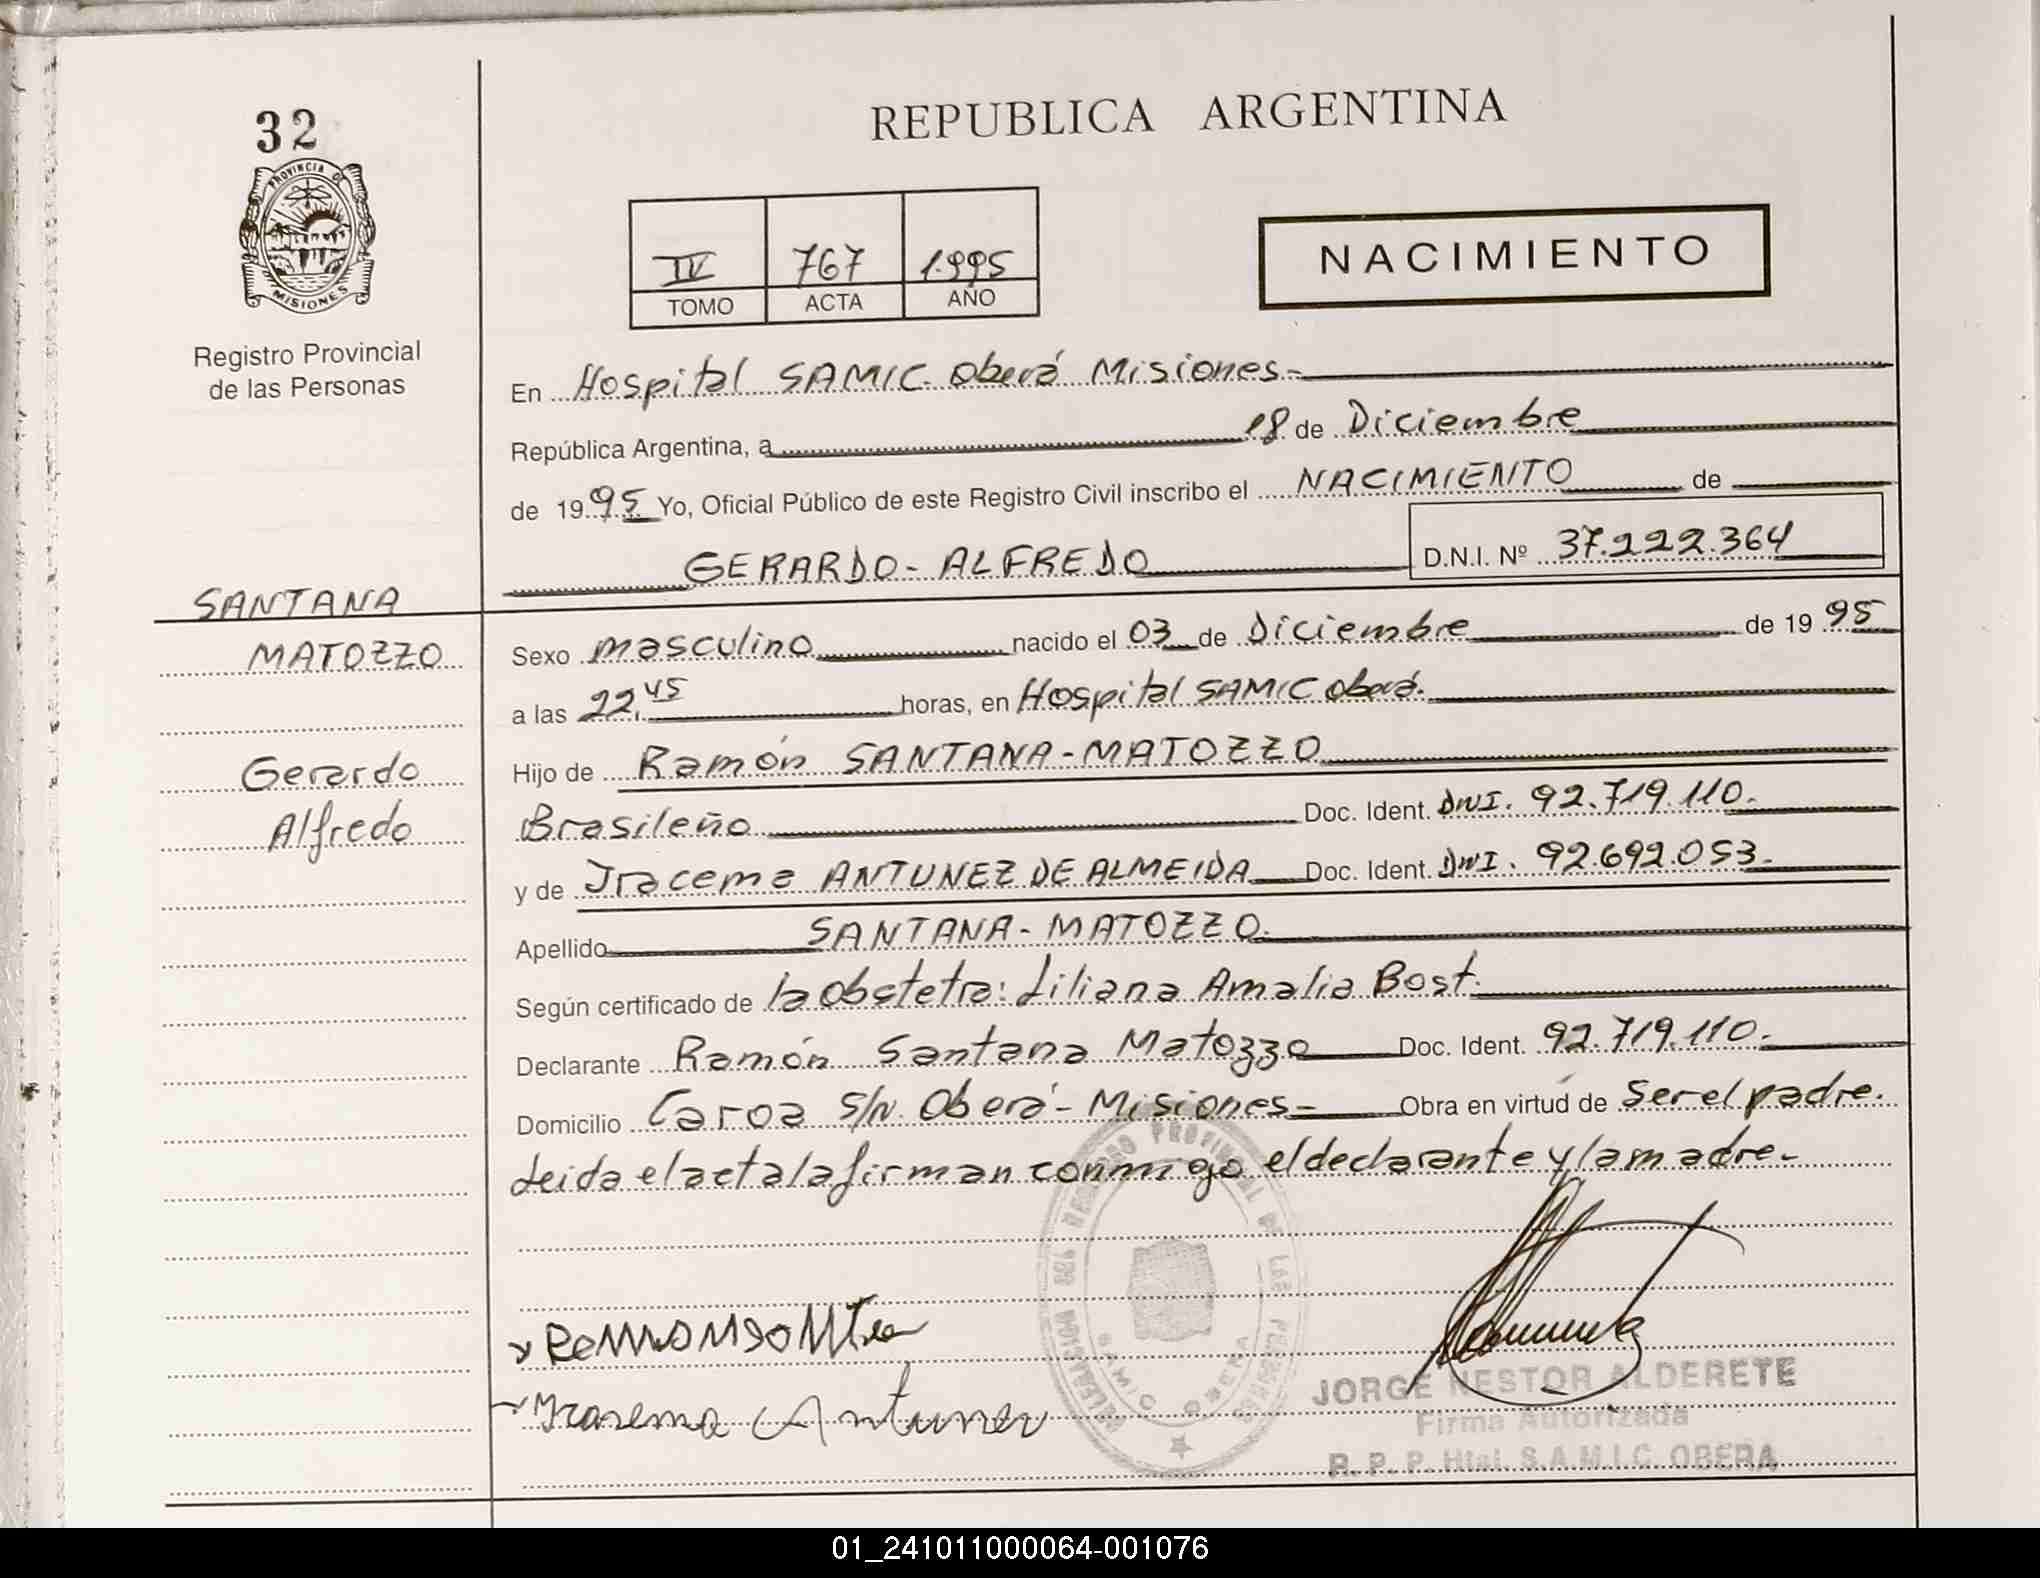 32
PROVINCIA DE
MISIONES
Registro Provincial
de las Personas
REPUBLICA ARGENTINA
IV 767 1.995
TOMO ACTA AÑO
NACIMIENTO
En Hospital SAMIC. Oberá Misiones.-
República Argentina, a 18 de Diciembre
de 1995 Yo, Oficial Público de este Registro Civil inscribo el NACIMIENTO de
GERARDO-ALFREDO D.N.I. Nº 37.222.364
SANTANA
MATOZZO
Gerardo
Alfredo
Sexo masculino nacido el 03 de Diciembre de 1995
a las 22,45 horas, en Hospital SAMIC oberá.
Hijo de Ramón SANTANA-MATOZZO
Brasileño Doc. Ident. DNI. 92.719.110.
y de Iracema ANTUNEZ DE ALMEIDA Doc. Ident. DNI. 92.692.053.
Apellido SANTANA-MATOZZO.
Según certificado de la obstetra: Liliana Amalia Bost.
Declarante Ramón Santana Matozzo Doc. Ident. 92.719.110.-
Domicilio Caroa S/N. Oberá-Misiones- Obra en virtud de ser el padre.
Leida el acta la firman conmigo el declarante y la madre-
Irasema Antunez
JORGE NESTOR ALDERETE
Firma Autorizada
R. P. P. Htal. S.A.M.I.C. OBERA
01_241011000064-001076